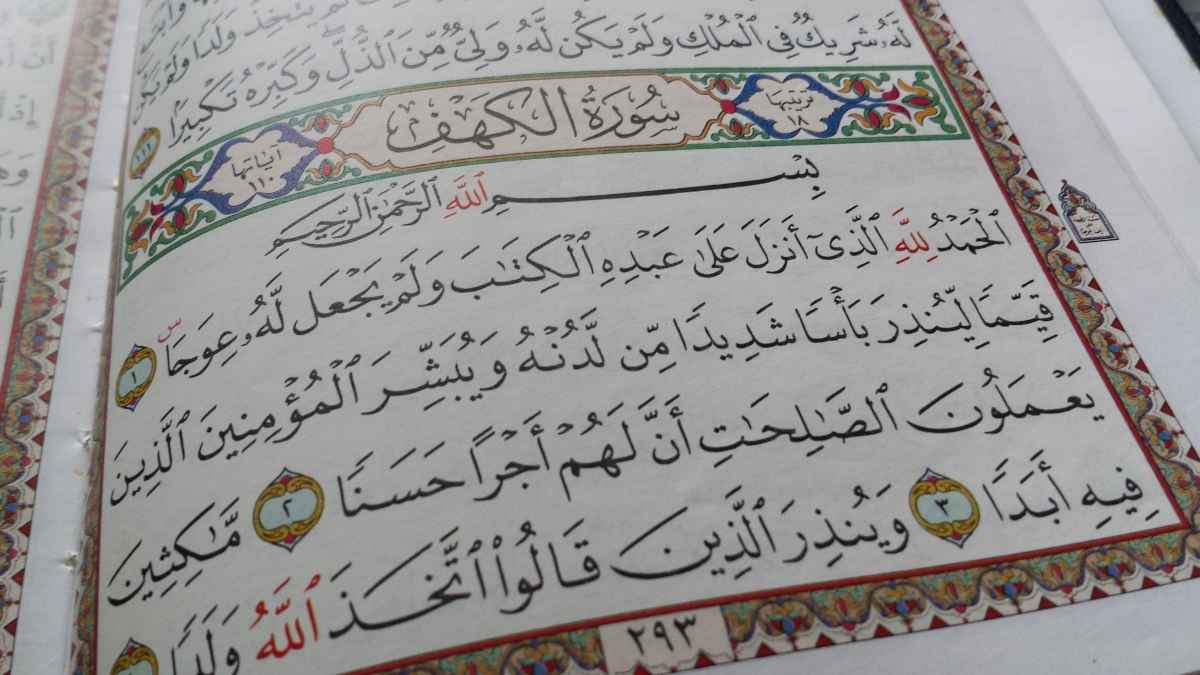 يتخذ ولدا ولم يكن
لَّهُۥ شَرِيكٌ فِى ٱلْمُلْكِ وَلَمْ يَكُن لَّهُۥ وَلِىٌّ مِّنَ ٱلذُّلِّ ۖ وَكَبِّرْهُ تَكْبِيرًۢا ١١١
ترتيبها ١٨ سُورَةُ الكَهْفِ آياتها ١١٠
بِسْمِ ٱللَّهِ ٱلرَّحْمَٰنِ ٱلرَّحِيمِ
ٱلْحَمْدُ لِلَّهِ ٱلَّذِىٓ أَنزَلَ عَلَىٰ عَبْدِهِ ٱلْكِتَٰبَ وَلَمْ يَجْعَل لَّهُۥ عِوَجَاۜ ١
قَيِّمًا لِّيُنذِرَ بَأْسًا شَدِيدًا مِّن لَّدُنْهُ وَيُبَشِّرَ ٱلْمُؤْمِنِينَ ٱلَّذِينَ
يَعْمَلُونَ ٱلصَّٰلِحَٰتِ أَنَّ لَهُمْ أَجْرًا حَسَنًا ٢ مَّٰكِثِينَ
فِيهِ أَبَدًا ٣ وَيُنذِرَ ٱلَّذِينَ قَالُوا۟ ٱتَّخَذَ ٱللَّهُ وَلَدًا
٢٩٣